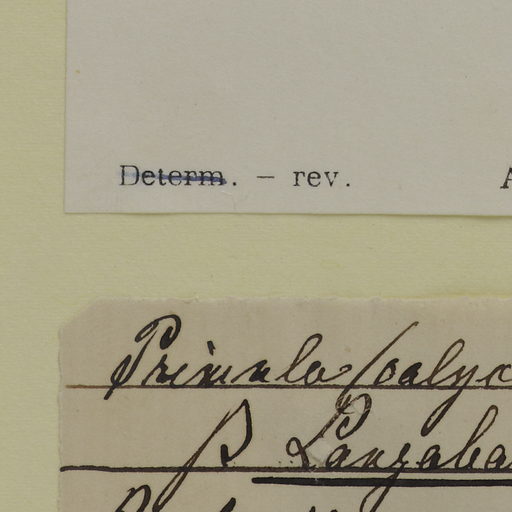 Determ. – rev.
Primula calyc
β Longoba